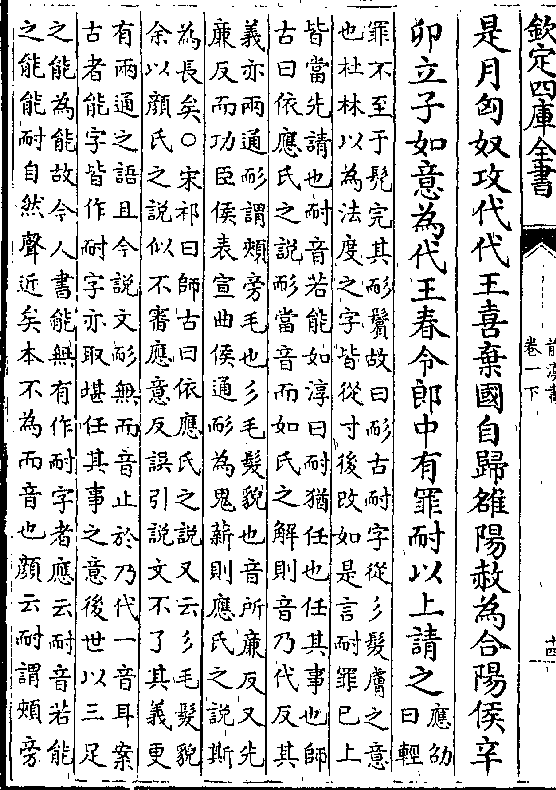 欽定四庫全書
前漢書
卷一下
十四
是月匈奴攻代代王喜棄國自歸雒陽赦為合陽侯辛
卯立子如意為代王春令郎中有罪耐以上請之應劭
曰輕
罪不至于髠完其耏鬢故曰耏古耐字從彡髮膚之意
也杜林以為法度之字皆從寸後改如是言耐罪已上
皆當先請也耐音若能如淳曰耐猶任也任其事也師
古曰依應氏之說耏當音而如氏之解則音乃代反其
義亦兩通耏謂頰旁毛也彡毛髮貌也音所廉反又先
廉反而功臣侯表宣曲侯通耏為鬼薪則應氏之說斯
為長矣○宋祁曰師古曰依應氏之說又云彡毛髮貌
余以顔氏之說似不審應意反誤引說文不了其義更
有兩通之語且今說文耏無而音止於乃代一音耳案
古者能字皆作耐字亦取堪任其事之意後世以三足
之能為能故今人書能無有作耐字者應云耐音若能
之能能耐自然聲近矣本不為而音也顔云耐謂頰旁